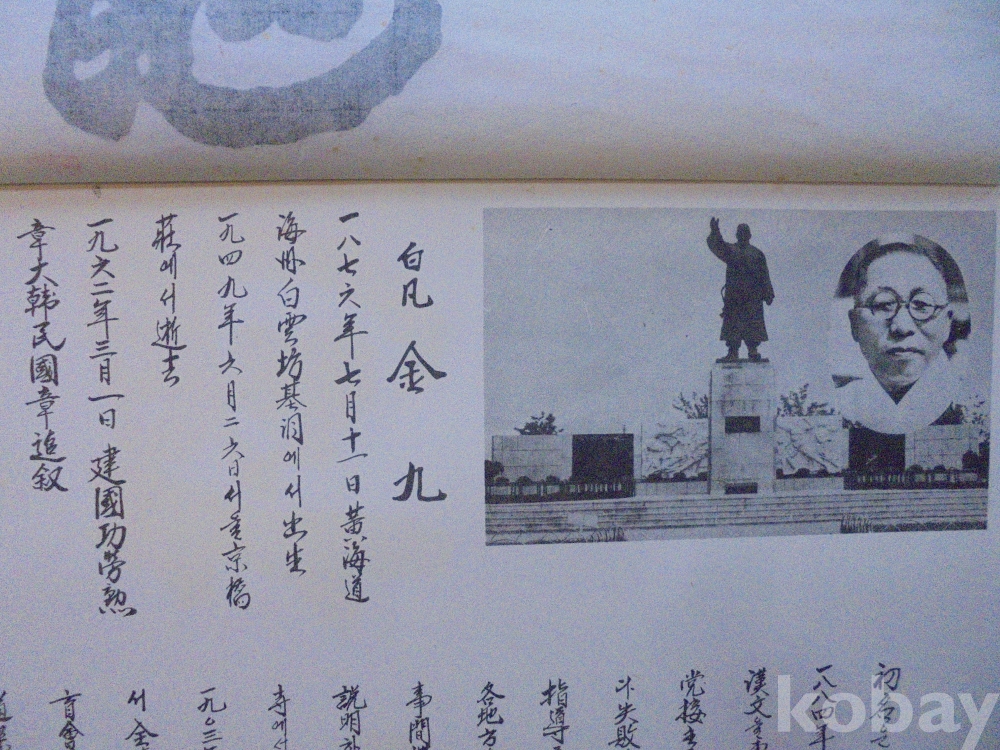 白凡 金九
一八七六年七月十一日 黃海道
海州白雲坊基洞에서 出生
一九四九年 六月 二六日 서울京橋
莊에서 逝去
一九六二年 三月 一日 建國功勞勲
章大韓民國章追叙
初名은
一八八四年
漢文
党接
失敗
指導
各地方
事間
説明
寺에서
育會
kobay